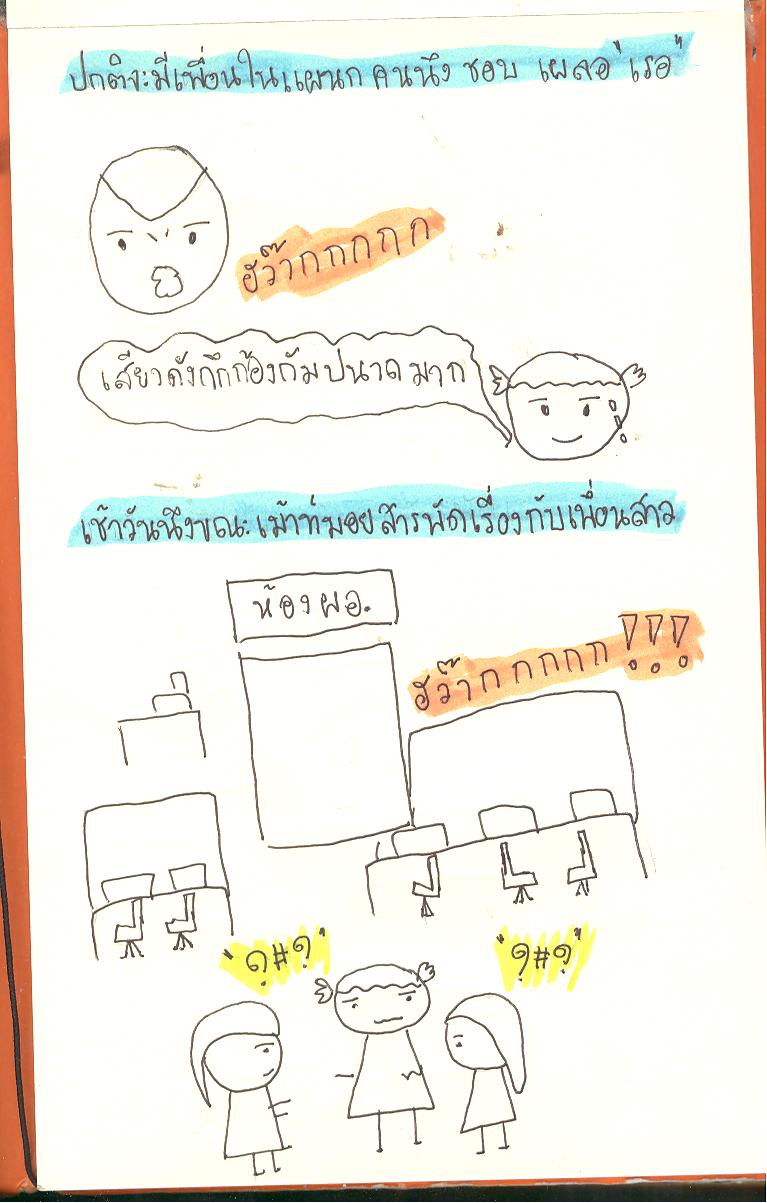 ปกติจะมีเพื่อนในแผนกคนนึง ชอบ เผลอ "เรอ"
ฮว๊ากกกกก
เสียวดังกึกก้องกัมปนาดมาก
เช้าวันนึงขณะเม้าท์มอยสารพัดเรื่องกับเพื่อนสาว
ห้องผอ.
ฮว๊ากกกกก!!!
"?#?"
"?#?"